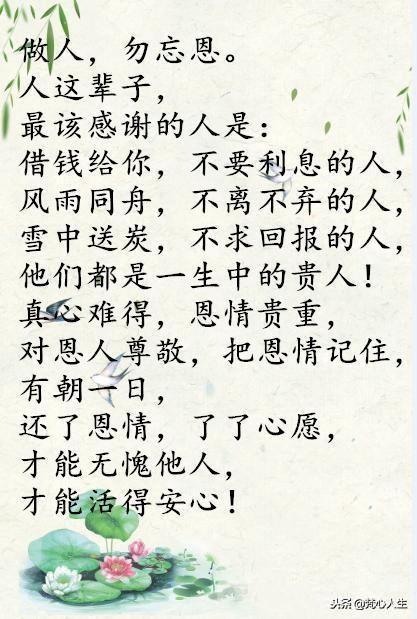 做人，勿忘恩。
人这辈子，
最该感谢的人是：
借钱给你，不要利息的人，
风雨同舟，不离不弃的人，
雪中送炭，不求回报的人，
他们都是一生中的贵人！
真心难得，恩情贵重，
对恩人尊敬，把恩情记住，
有朝一日，
还了恩情，了了心愿，
才能无愧他人，
才能活得安心！
头条@梵心人生